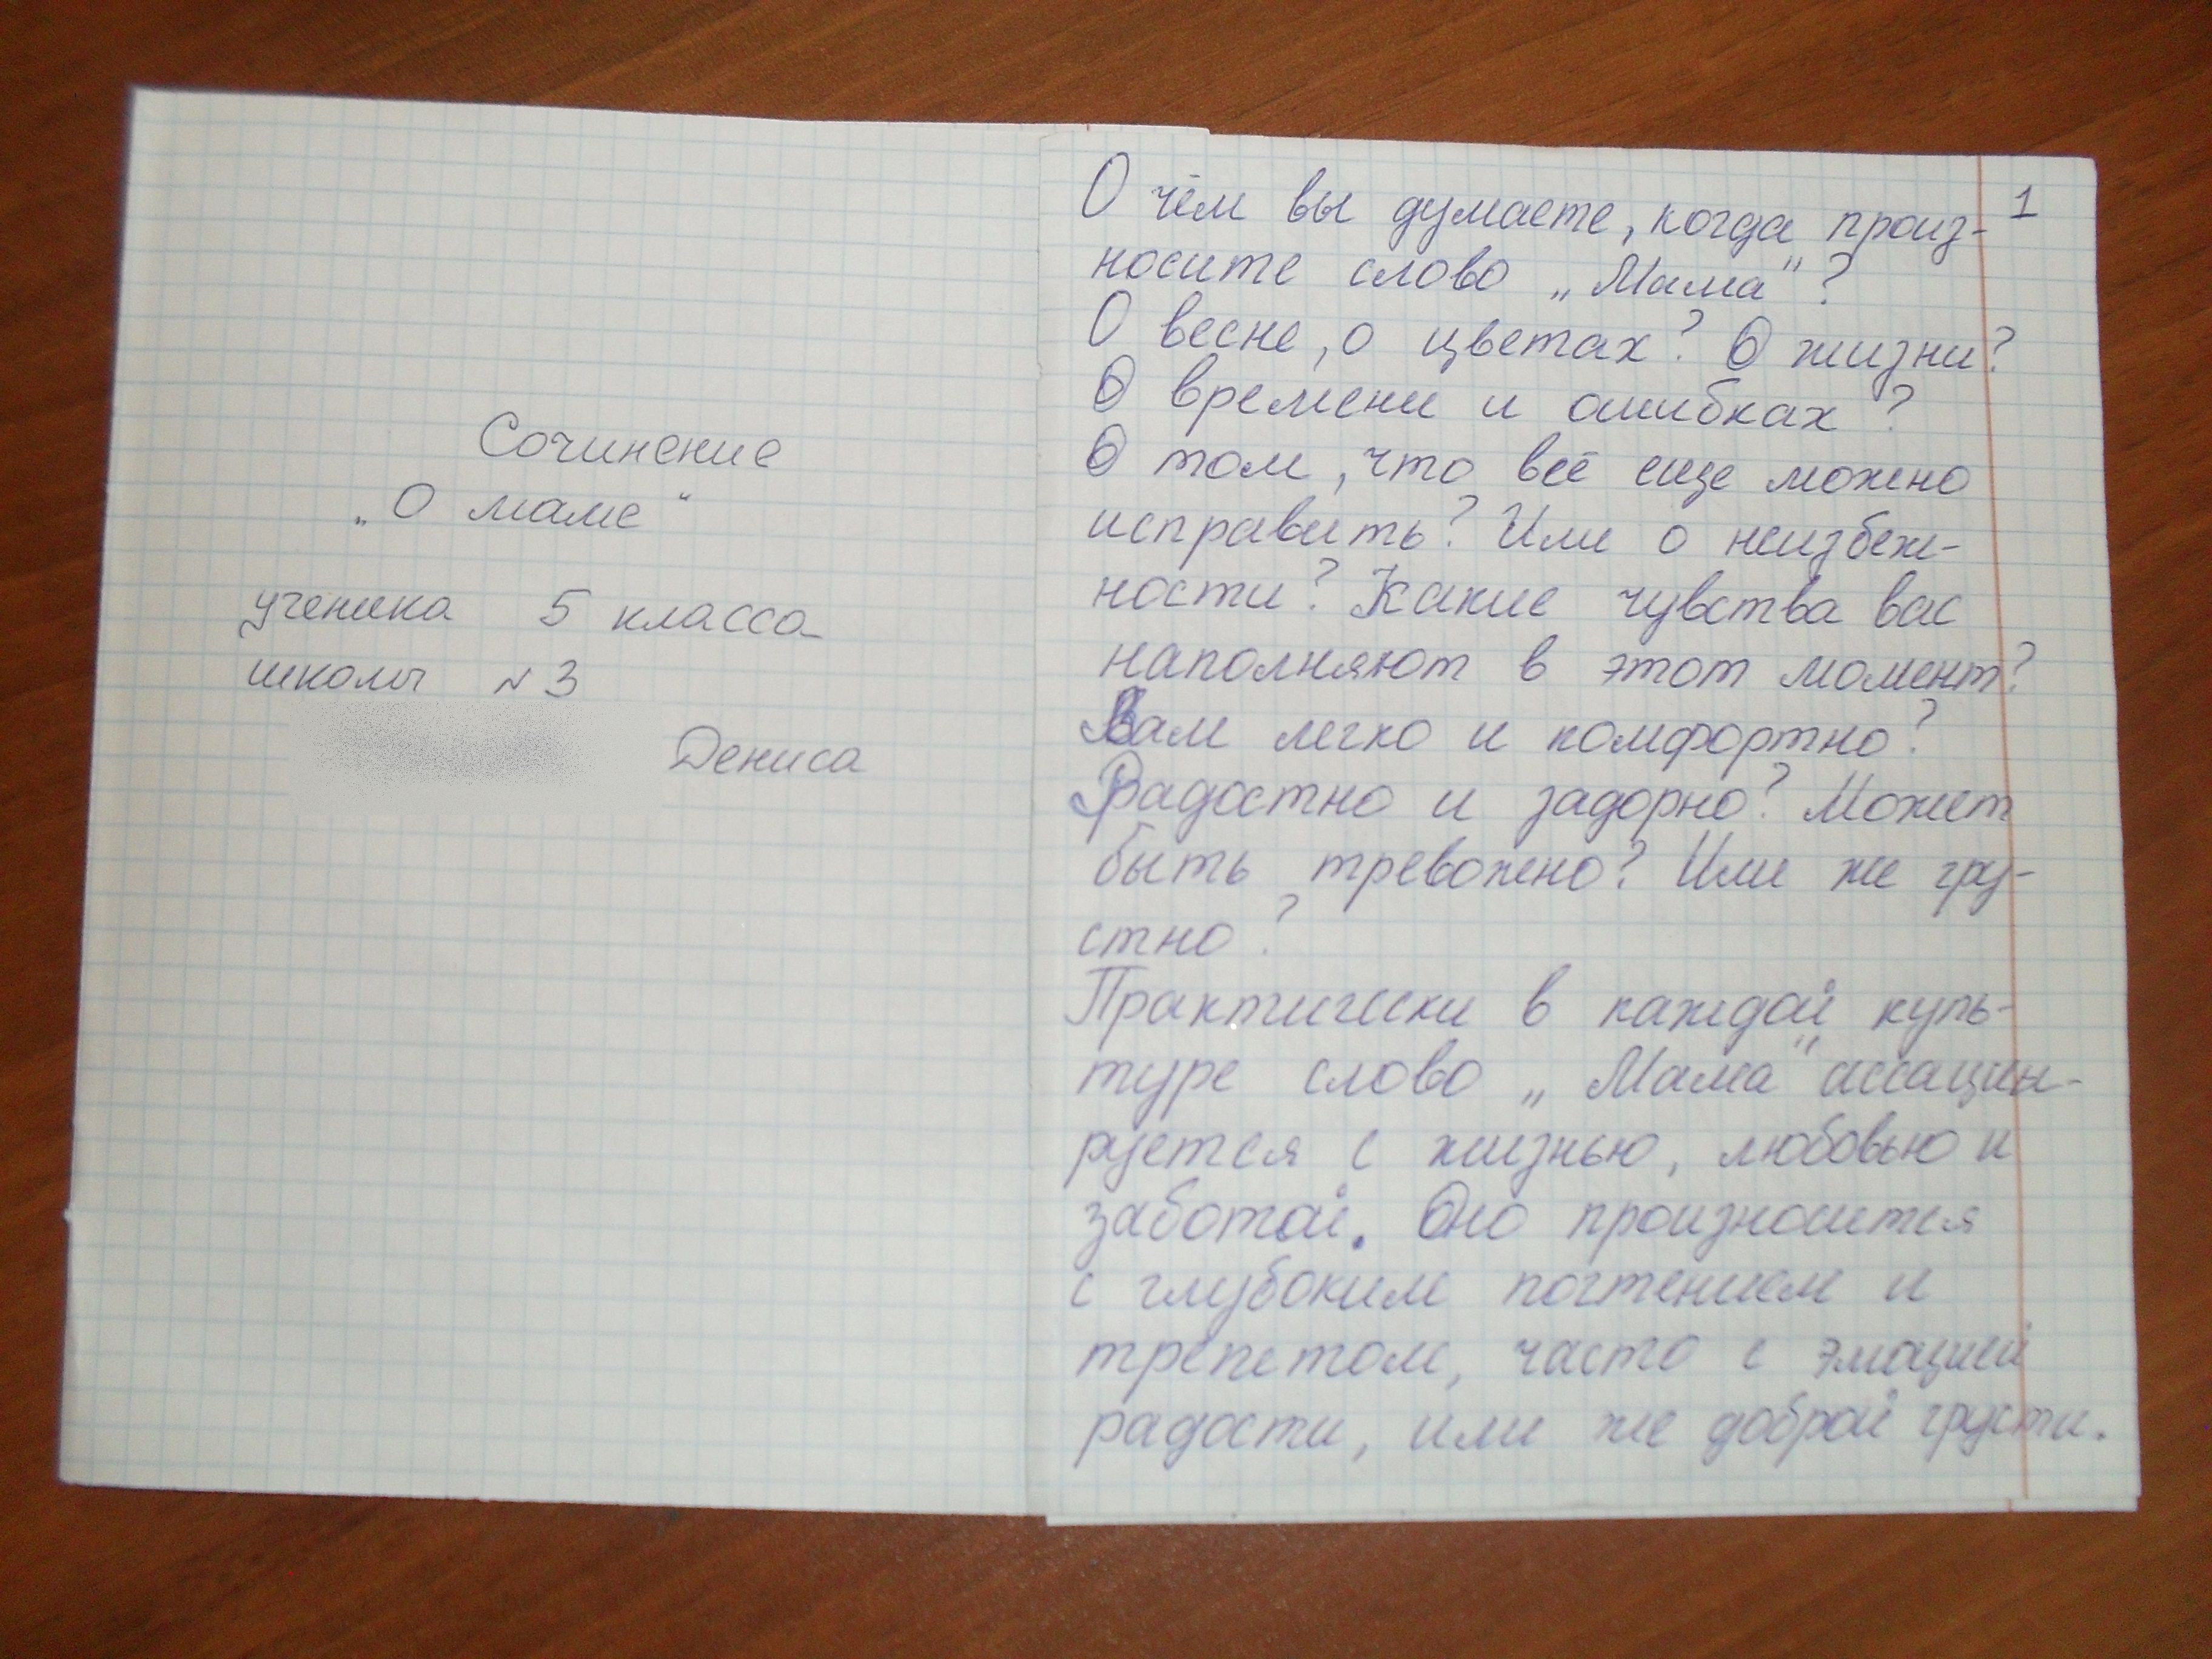 Сочинение
„О маме“
ученика 5 класса
школы №3
Дениса
1
О чём вы думаете, когда произ-
носите слово „Мама“?
О весне, о цветах? О жизни?
О времени и ошибках?
О том, что всё еще можно
исправить? Или о неизбеж-
ности? Какие чувства вас
наполняют в этот момент?
Вам легко и комфортно?
Радостно и задорно? Может
быть тревожно? Или же гру-
стно?
Практически в каждой куль-
туре слово „Мама“ ассации-
руется с жизнью, любовью и
заботой. Оно произносится
с глубоким почтением и
трепетом, часто с эмоцией
радости, или же доброй грусти.